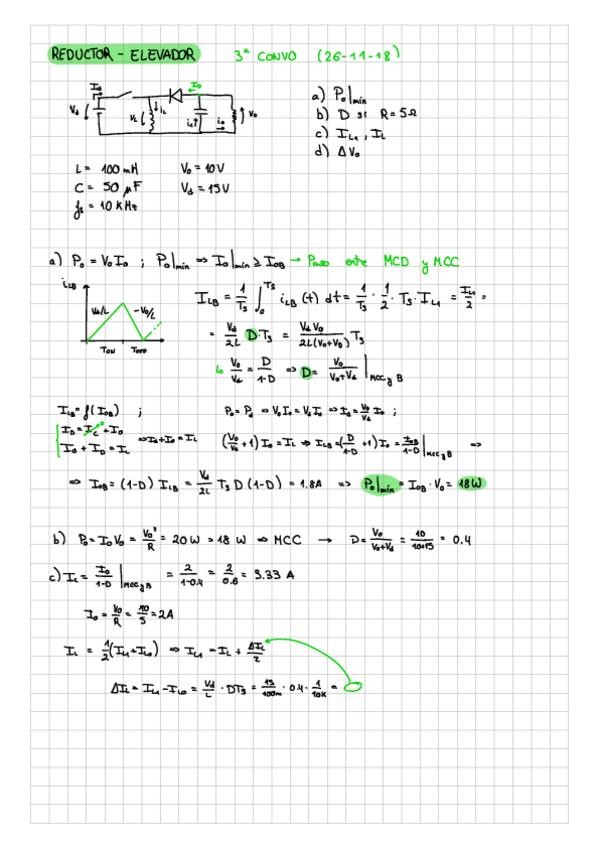 REDUCTOR - ELEVADOR 3ª CONVO (26-11-18)
Vd Id VL iL Io ic io Vo
a) Po|min
b) D si R = 5Ω
c) IL1, IL
d) ΔVo
L = 100 mH Vo = 10V
C = 50 μF Vd = 15V
fs = 10 KHz
a) Po = Vo Io ; Po|min ⇒ Io|min ≥ IOB → Paso entre MCD y MCC
iLB
Vd/L -Vo/L
TON TOFF
ILB = 1/Ts ∫₀^Ts iLB(t) dt = 1/Ts · 1/2 · Ts · IL1 = IL1/2 =
= Vd/2L D·Ts = Vd Vo/2L(Vo+VD) Ts
↳ Vo/Vd = D/1-D ⇒ D = Vo/Vo+Vd |MCC y B
ILB = f(IOB) ;
ID = Ic + Io
Id + ID = IL
⇒ Id + Io = IL
Po = Pd ⇒ Vo Io = Vd Id ⇒ Id = Vo/Vd Io ;
(Vo/Vd + 1) Io = IL ⇒ ILB = (D/1-D + 1) Io = IOB/1-D |MCC y B ⇒
⇒ IOB = (1-D) ILB = Vd/2L Ts D (1-D) = 1.8A ⇒ Po|min = IOB · Vo = 18W
b) Po = Io Vo = Vo²/R = 20 W > 18 W ⇒ MCC → D = Vo/Vo+Vd = 10/10+15 = 0.4
c) IL = Io/1-D |MCC y B = 2/1-0.4 = 2/0.6 = 3.33 A
Io = Vo/R = 10/5 = 2A
IL = 1/2 (IL1 + IL0) ⇒ IL1 = IL + ΔIL/2
ΔIL = IL1 - IL0 = Vd/L · DTs = 15/100m · 0.4 · 1/10K =